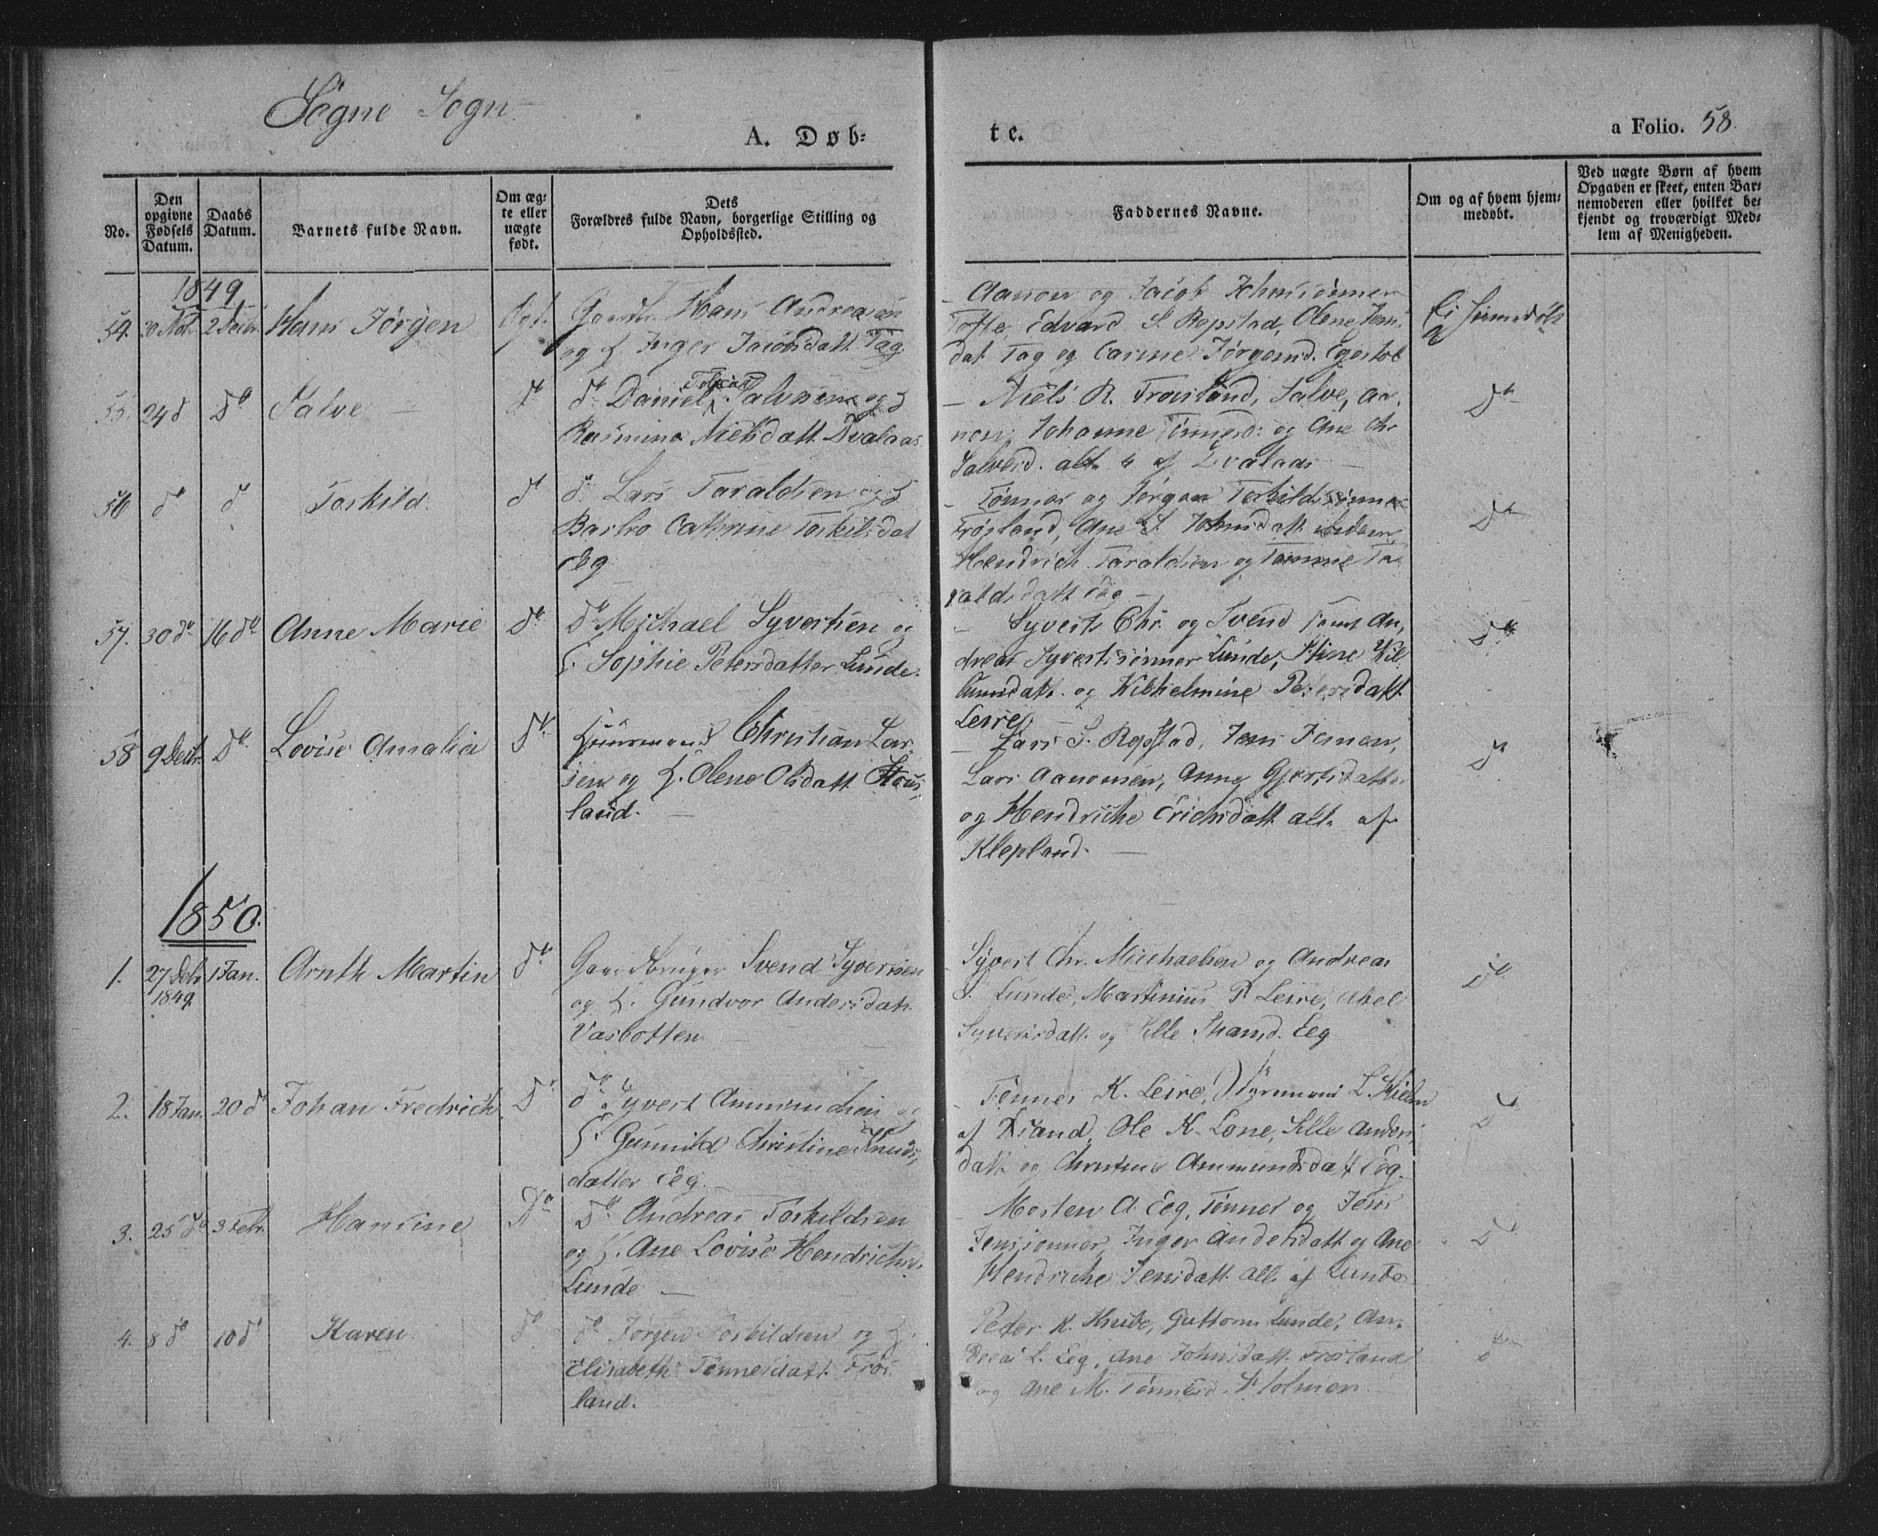 Søgne Sogn
A. Døb-
te.
a Folio. 58.
No.
Den opgivne Fødsels Datum.
Daabs Datum.
Barnets fulde Navn.
Om ægte eller uægte født.
Dets Forældres fulde Navn, borgerlige Stilling og Opholdssted.
Faddernes Navne.
Om og af hvem hjemmedøbt.
Ved uægte Børn af hvem Opgaven er skeet, enten Barnemoderen eller hvilket bekjendt og troværdigt Medlem af Menigheden.
1849
54. 20 Nov. 2 Decbr. Hans Jørgen
Hans Andreasen
og H. Inger Jacobsdatt. Tag
Aanon og Jacob Johnssønner
Tofte, Edvard S. Repstad, Olene Jens
dat. Tag og Carine Jørgensd.
Ei hjemedøbt
55. 24 d Do Salve
do
do Daniel Tobias Salvesen og H
Rasmine Nielsdatt. Dvalaas
Niels R. Trøsland, Salve, Aa-
non, Johanne Tønnesd. og Ane Chr
Salvesd. alle 4 af Dvalaas
Do
56 do d Torkild
do
do Lars Taraldsen og H
Barbro Cathrine Torkilsdat
Eg
Tønnes og Jørgen Torkildssønner
Trøsland, Ane S. Johnsdatt.
Hendrich Taraldsen og Tomine Ta-
raldsdatt. Eeg
Do
57. 30 do 16 do Anne Marie
Do
Do Michael Syvertsen og
H. Sophie Petersdatter Lunde.
Syvert Chr. og Svend samt An-
dreas Syvertssønner Lunde, Stine
og Wilhelmine Petersdatt.
Leire
Do
58 9 Decbr. Do Lovise Amalia
Do
Huusmand Christian Lar-
sen og H. Olene Olsdatt.
land.
Lars S. Repstad, Jens Jensen,
Lars Aanonsen, Anne Gjertsdatter
og Hendriche Erichsdatt. alle af
Klepland.
do
1850.
1. 27 Decbr 1849. 1 Jan. Arnth Martin
Do
Gaardbruger Svend Syvertsen
og H. Gundvor Andersdatt.
Vasbotten
Syvert Chr. Michaelsen og Andreas
S. Lunde, Martinius P. Leire, Abel
Syvertsdatt. og Eeg
do
2. 18 Jan. 20 d Johan Fredrich
Do
do Syvert Ammundsen og
H. Gunnild Christine Knuds-
datter Eeg.
Tønnes K. Leire,
Ole K. Lone, Sille Anders
datt. og Christine Ammundsdatt Eeg.
do
3. 25 do 3 Febr. Hansine
Do
Do Andreas Torkildsen
og H. Ane Lovise Hendrichsd.
Lunde
Morten A. Eeg, Tønnes og Jens
Jenssønner, Inger Andersdatt og Ane
Hendriche Jensdatt. alle af Lunde
do
4. 8 do 10 do Karen
do
do Jørgen Torkildsen og H.
Elisabeth Tønnesdatt. Trøs-
land.
Peder K. Guttorm Lunde, An-
dreas L. Eeg, Ane Johnsdatt. Trøsland
og Ane M. Tønnesd. Holmen
do